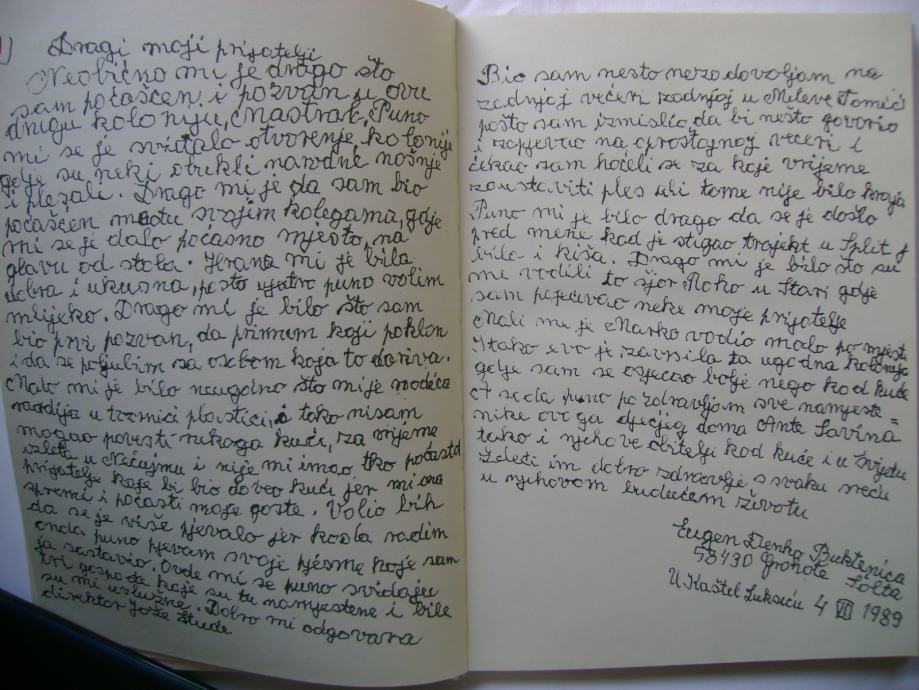 1) Dragi moji prijatelji
Neobično mi je drago što
sam počašćen i pozvan u ovu
drugu koloniju, Mastral, Puno
mi se je sviđalo otvorenje kolonije
gdje su neki obukli narodne nošnje
i plezali. Drago mi je da sam bio
počašćen među svojim kolegama, gdje
mi se je dalo počasno mjesto, na
glavu od stola. Hrana mi je bila
dobra i ukusna, pošto ujutro puno volim
mlijeko. Drago mi je bilo što sam
bio prvi pozvan, da primim koji poklon
i da se poljubim sa osobom koja to dariva.
Malo mi je bilo neugodno što mi je
radija u tvornici plastici, i tako nisam
mogao povesti nikoga kući, za vrijeme
izleta u Nečujmu i nije mi imao tko počastit
prijatelje koje bi bio doveo kući jer mi ona
spremi i počasti moje goste. Volio bih
da se je više pjevalo jer kada radim
onda puno pjevam svoje pjesme koje sam
ja sastavio. Ovde mi se puno sviđaju
tri gospođe koje su tu namještene i bile
su mi uslužne. Dobro mi odgovara
direktor Joze Stude
Bio sam nesto nezadovoljam na
zadnjoj večeri zadnjoj u Mileve Tomić
pošto sam izmislio, da bi nešto govorio
i zapjevao na oprostajnoj večeri i
čekao sam hoćeli se za koje vrijeme
zaustaviti ples ali tome nije bilo kraja
Puno mi je bilo drago da se je došlo
pred mene kad je stigao trajekt u Split j
bila i kiša. Drago mi je bilo što su
me vodili to sjor Roko u Stari gdje
sam pojećivao neke moje prijatelje
Mali me je Marko vodio malo po mjestu
I tako evo je završila ta ugodna kolonija
gdje sam se osjećao bolje nego kod kuće
A sada puno pozdravljam sve namješte=
nike ovoga dječjeg doma Ante Savina
tako i njehove obitelji kod kuće i u svijetu
Želeći im dobro zdravlje i svaku sreću
u njihovom budućem životu
Eugen Denko Buktenica
58430 Grohote Šolta
U Kaštel Lukšiću 4 VII 1989